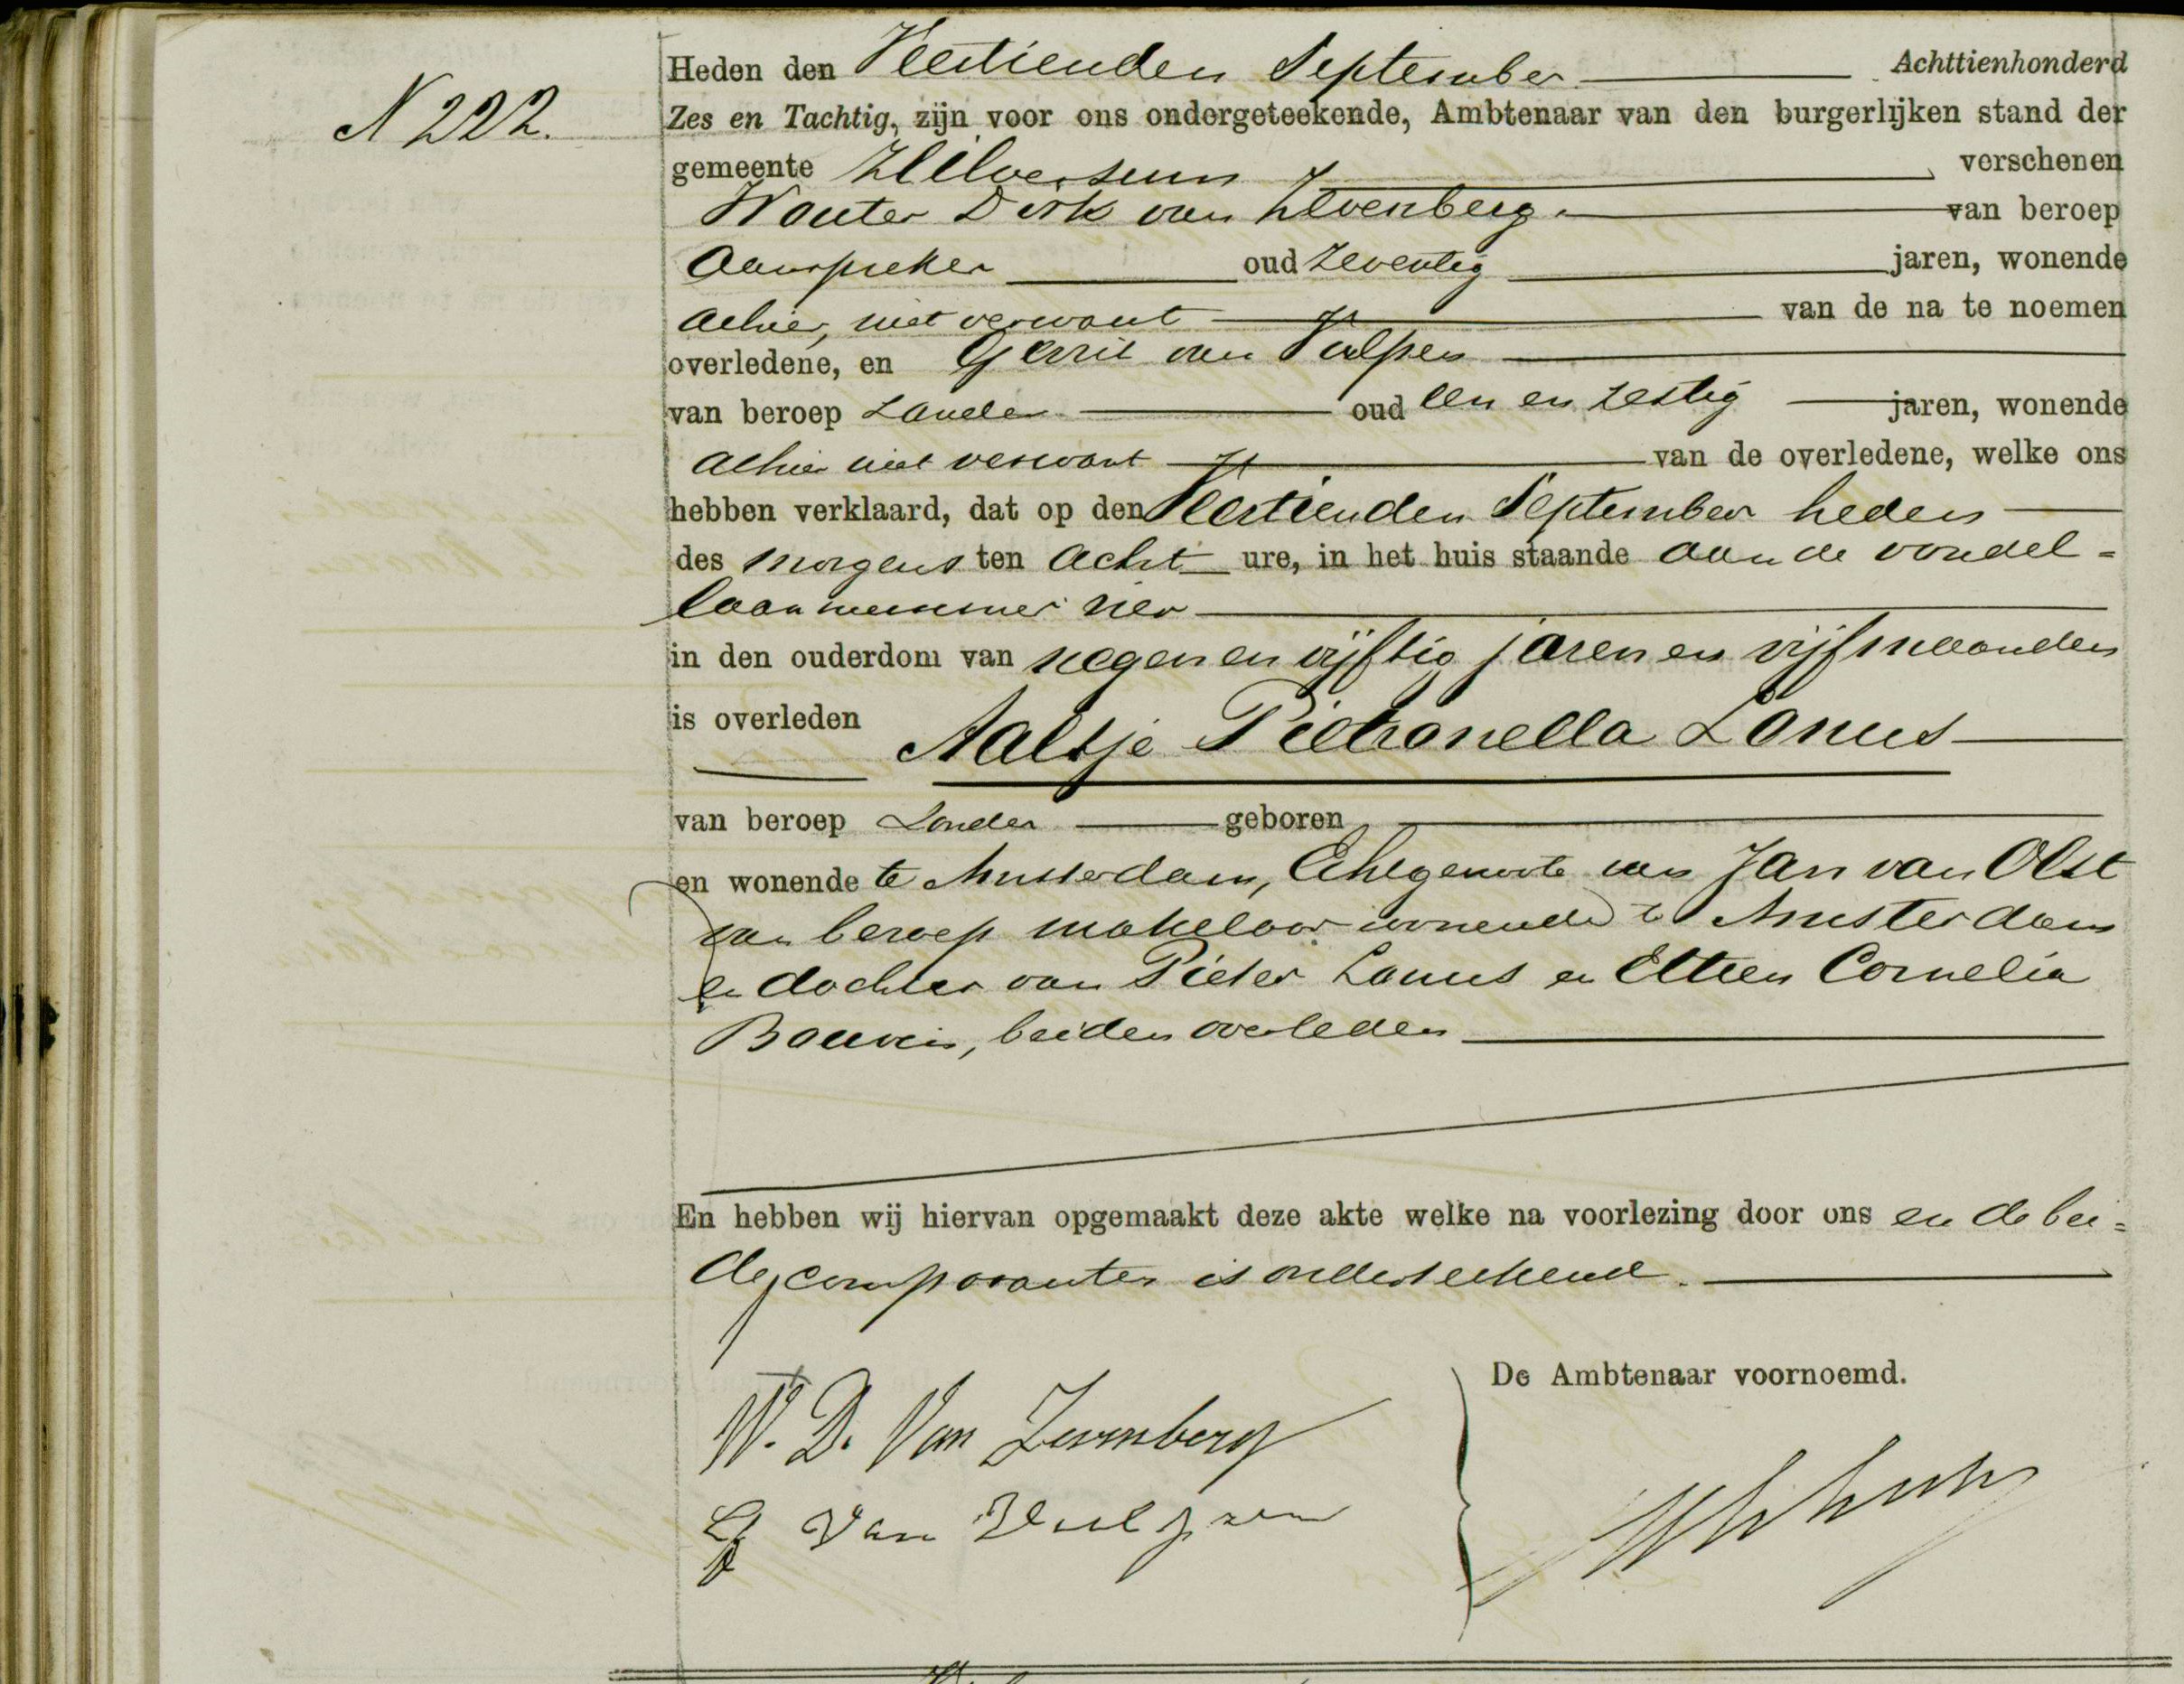 N 222.
Heden den Veertienden September Achttienhonderd
Zes en Tachtig, zijn voor ons ondergeteekende, Ambtenaar van den burgerlijken stand der
gemeente Hilversum verschenen
Wouter Dirk van Zevenberg van beroep
Aanspreker oud Zeventig jaren, wonende
alhier, niet verwant van de na te noemen
overledene, en Gerrit van Vulpen
van beroep Zonder oud een en zestig jaren, wonende
alhier niet verwant van de overledene, welke ons
hebben verklaard, dat op den Veertienden September heden
des morgens ten acht ure, in het huis staande aan de vondel=
laan nummer vier
in den ouderdom van negen en vijftig jaren en vijf maanden
is overleden Aaltje Pietronella Lonus
van beroep Zonder geboren
en wonende te Amsterdam, Echtgenoote van Jan van Olst
van beroep makelaar wonende te Amsterdam
en dochter van Pieter Lonus en Cornelia
beiden overleden
En hebben wij hiervan opgemaakt deze akte welke na voorlezing door ons en de bei=
de comparanten is onderteekend.
De Ambtenaar voornoemd.
W. D. Van Zevenberg
G Van Vulpen